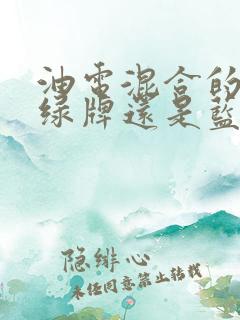 油电混合的
绿牌还是蓝
隐绯心
未经同意禁止转载